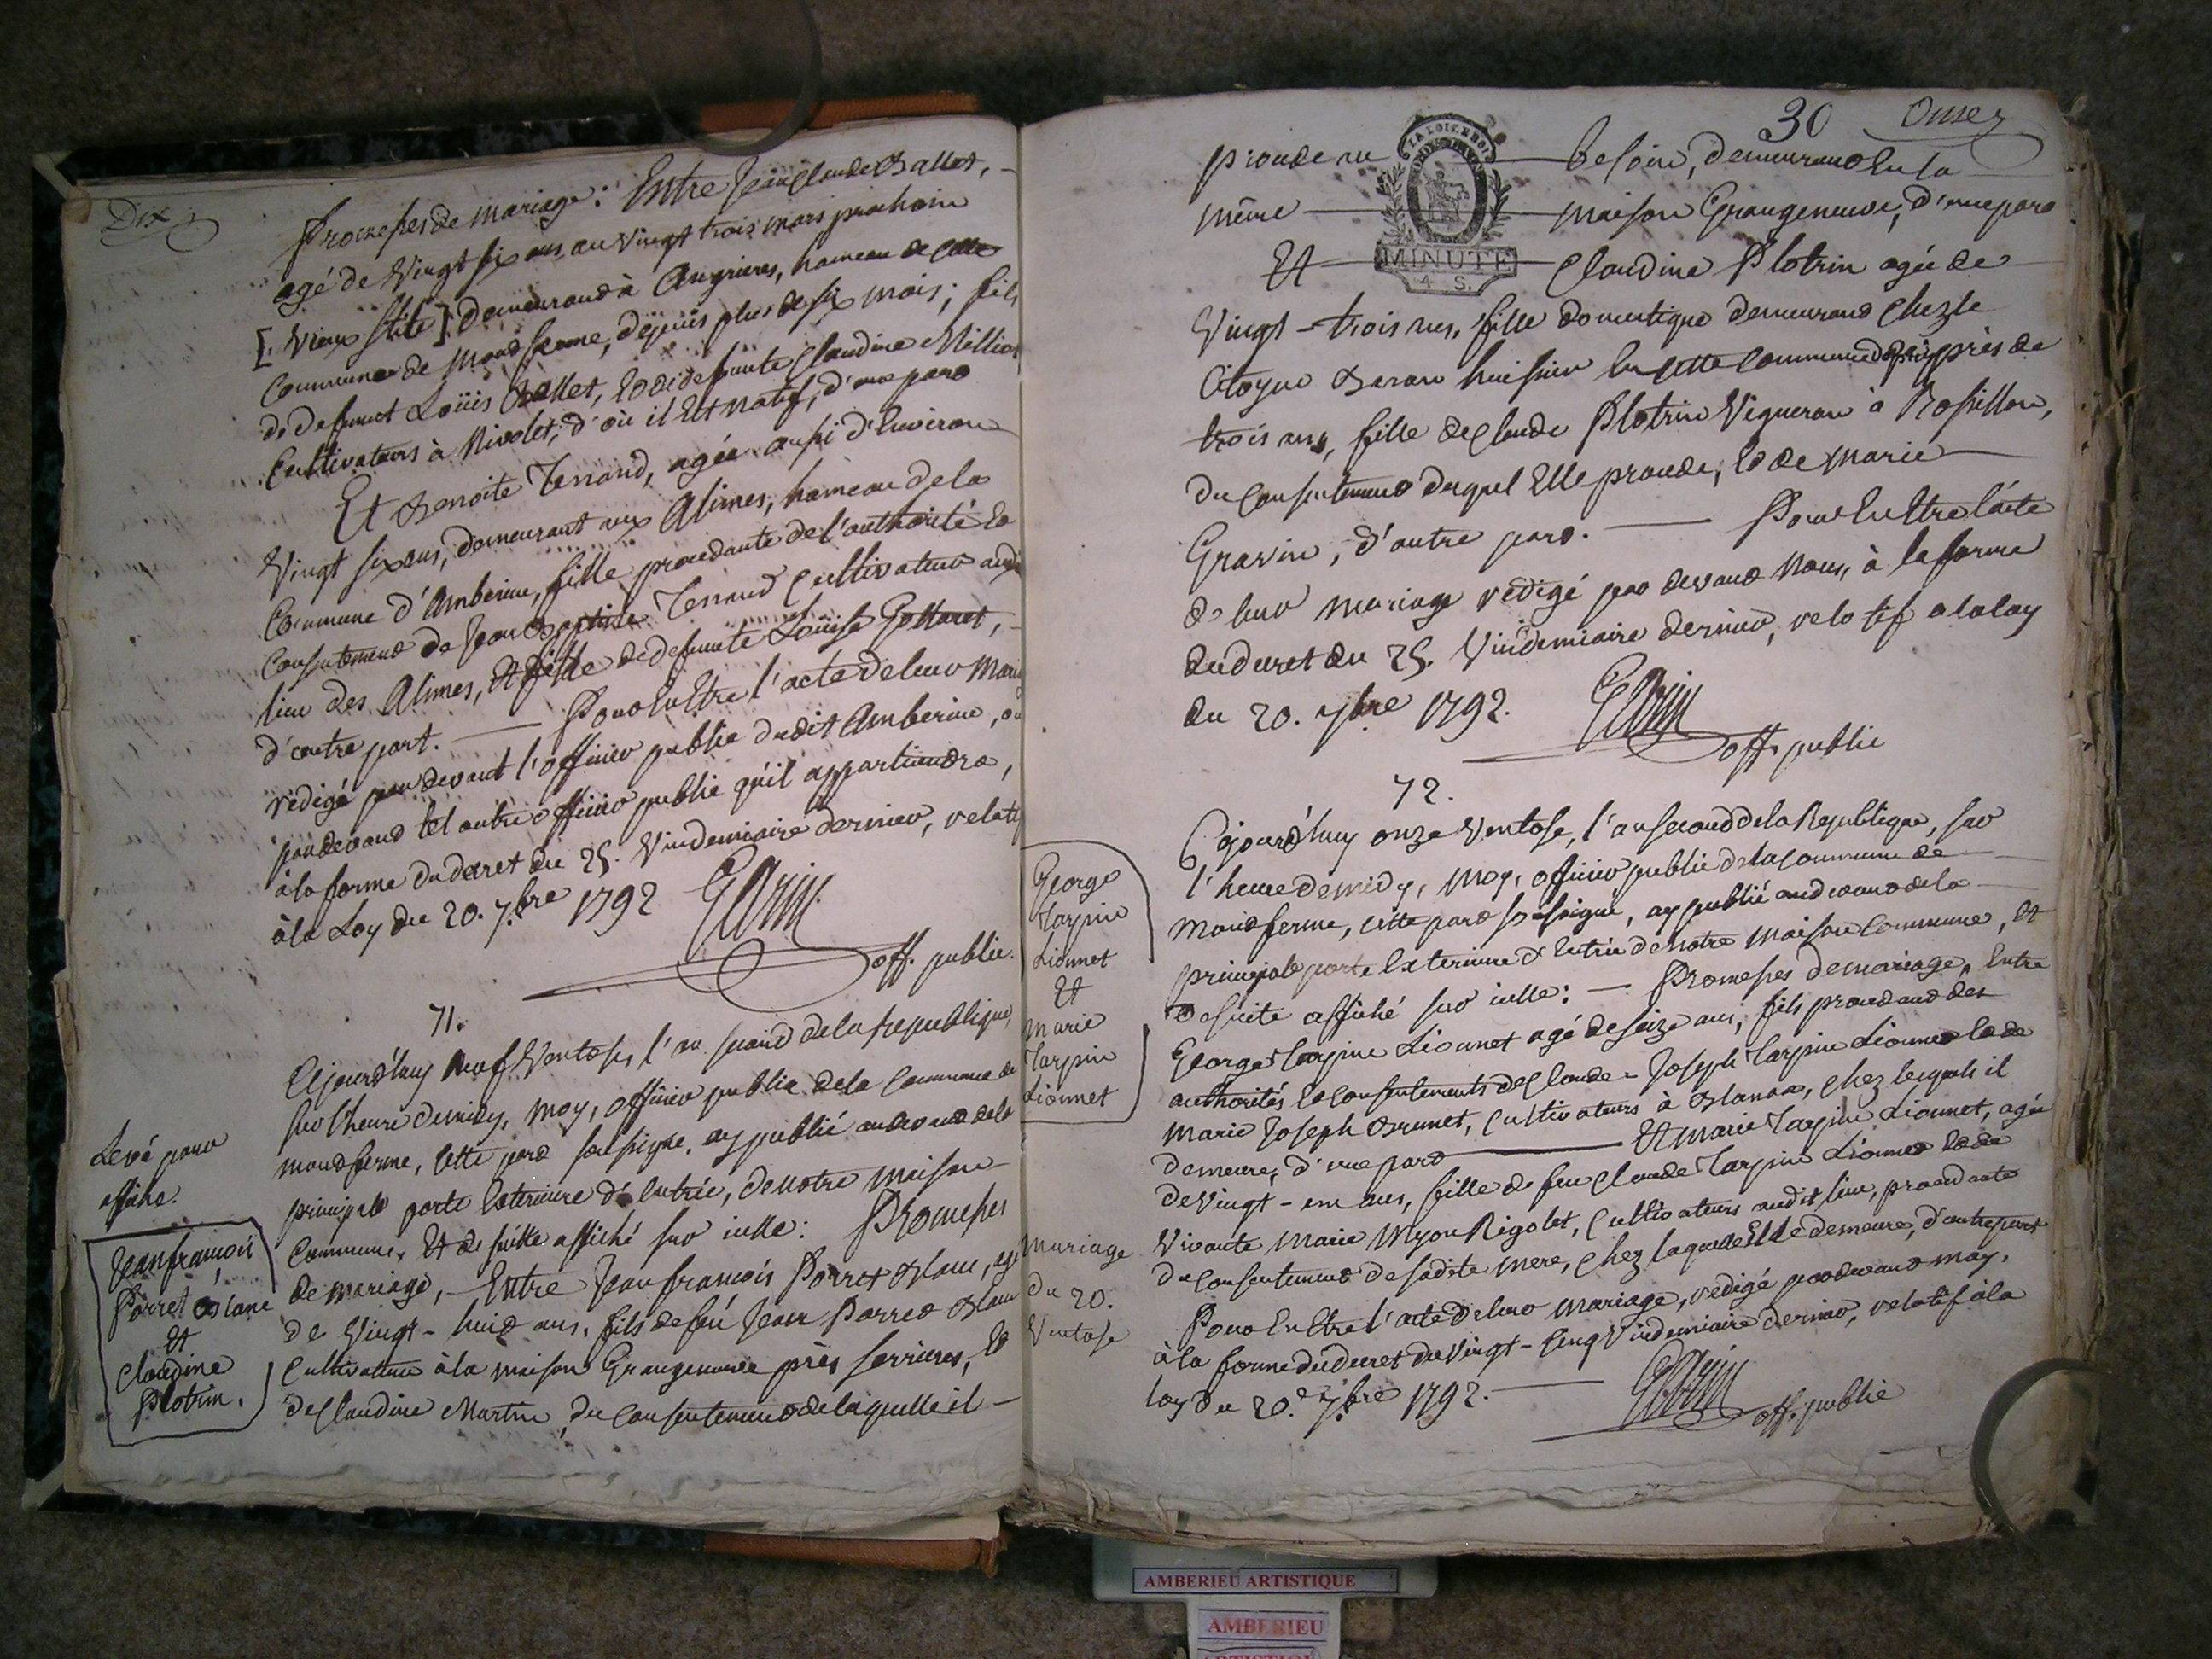 Dix
Promesses de mariage: Entre Jean Claude Ballet,
agé de Vingt six ans au Vingt trois mars prochain
[Vieux stile] demeurand à Angrieres, hameau de cette
Commune de Montferme, depuis plus de six mois; fils
de defunct Loüis Ballet, et de defunte Claudine Milliat
Cultivateurs à Nivolet, d'où il est natif, d'une part
Et Benoite Tenand, agée aussi d'Environ
Vingt six ans, demeurant aux Alimes, hameau de la
Commune d'Amberieu, fille procedante de l'authorité et
Consentement de Jean Baptiste Tenand Cultivateur audit
lieu des Alimes, et fille de defunte Loüise Gottaret,
d'autre part. Pour Entre l'acte de leur Mariage
redigé pardevant l'officier public dudit Amberieu, ou
pardevand tel autre officier public qu'il appartiendra,
à la forme du decret du 25. Vindemiaire dernier, relatif
à la Loy du 20. 7.bre 1792
off. public.
71.
Cejourd'huy neuf Ventose, l'an second de la republique,
sur l'heure de midy, moy, officier public de la Commune de
montferme, cette part soussigné, ay publié audevand de la
principale porte Exterieure d'entrée, de notre maison
Commune, Et de suitte affiché sur icelle: Promesses
de mariage, Entre Jean francois Porret Blanc, agé
de Vingt-huit ans, fils de feu Jean Porret Blanc
Cultivateur à la maison Grangeneuve près serrieres, et
de Claudine Martin, du Consentement de laquelle il
Levé pour
affiche.
Jean françois
Porret Blanc
Et
Claudine
Plotrin.
30 Onze
procede au besoin, demeurand En la
même maison Grangeneuve, d'une part
Et Claudine Plotrin agée de
Vingt-trois ans, fille domestique demeurand chez le
Citoyen Baron huissier En cette Commune depuis près de
trois ans, fille de Claude Plotrin Vigneron à Rossillon,
du Consentement duquel Elle procede, et de Marie
Gravin, d'autre part. Pour En Etre l'acte
de leur mariage redigé par devand Nous, à la forme
du decret du 25. Vindemiaire dernier, relatif a la loy
du 20. 7bre 1792.
off. public
72.
Cejourd'huy onze Ventose, l'an second de la Republique, sur
l'heure de midy, moy, officier public de la Commune de
Montferme, cette part soussigné, ay publié audevand de la
principale porte Exterieure d'Entrée de notre maison Commune, Et
de suite affiché sur icelle: Promesses de mariage, Entre
George Tarpin Lionnet agé de seize ans, fils procedand des
authorités et Consentements de Claude-Joseph Tarpin Lionnet et de
Marie Joseph Brunet, Cultivateurs à Blanaz, chez lesquels il
demeure, d'une part Et Marie Tarpin Lionnet, agée
de Vingt-un ans, fille de feu Claude Tarpin Lionnet et de
Vivante Marie Myon Rigolet, Cultivateurs audit lieu, procedante
du Consentement de sadite mere, chez laquelle Elle demeure, d'autre part
Pour En Etre l'acte de leur mariage, redigé pardevand moy,
à la forme du decret du Vingt-Cinq Vindemiaire dernier, relatif à la
loy du 20. 7.bre 1792.
off. public
George
Tarpin
Lionnet
Et
Marie
Tarpin
Lionnet
Mariage
du 20.
Ventose
LA LOI ET LE ROI
MINUTE
4 S.
AMBERIEU ARTISTIQUE
AMBERIEU
ARTISTIQUE